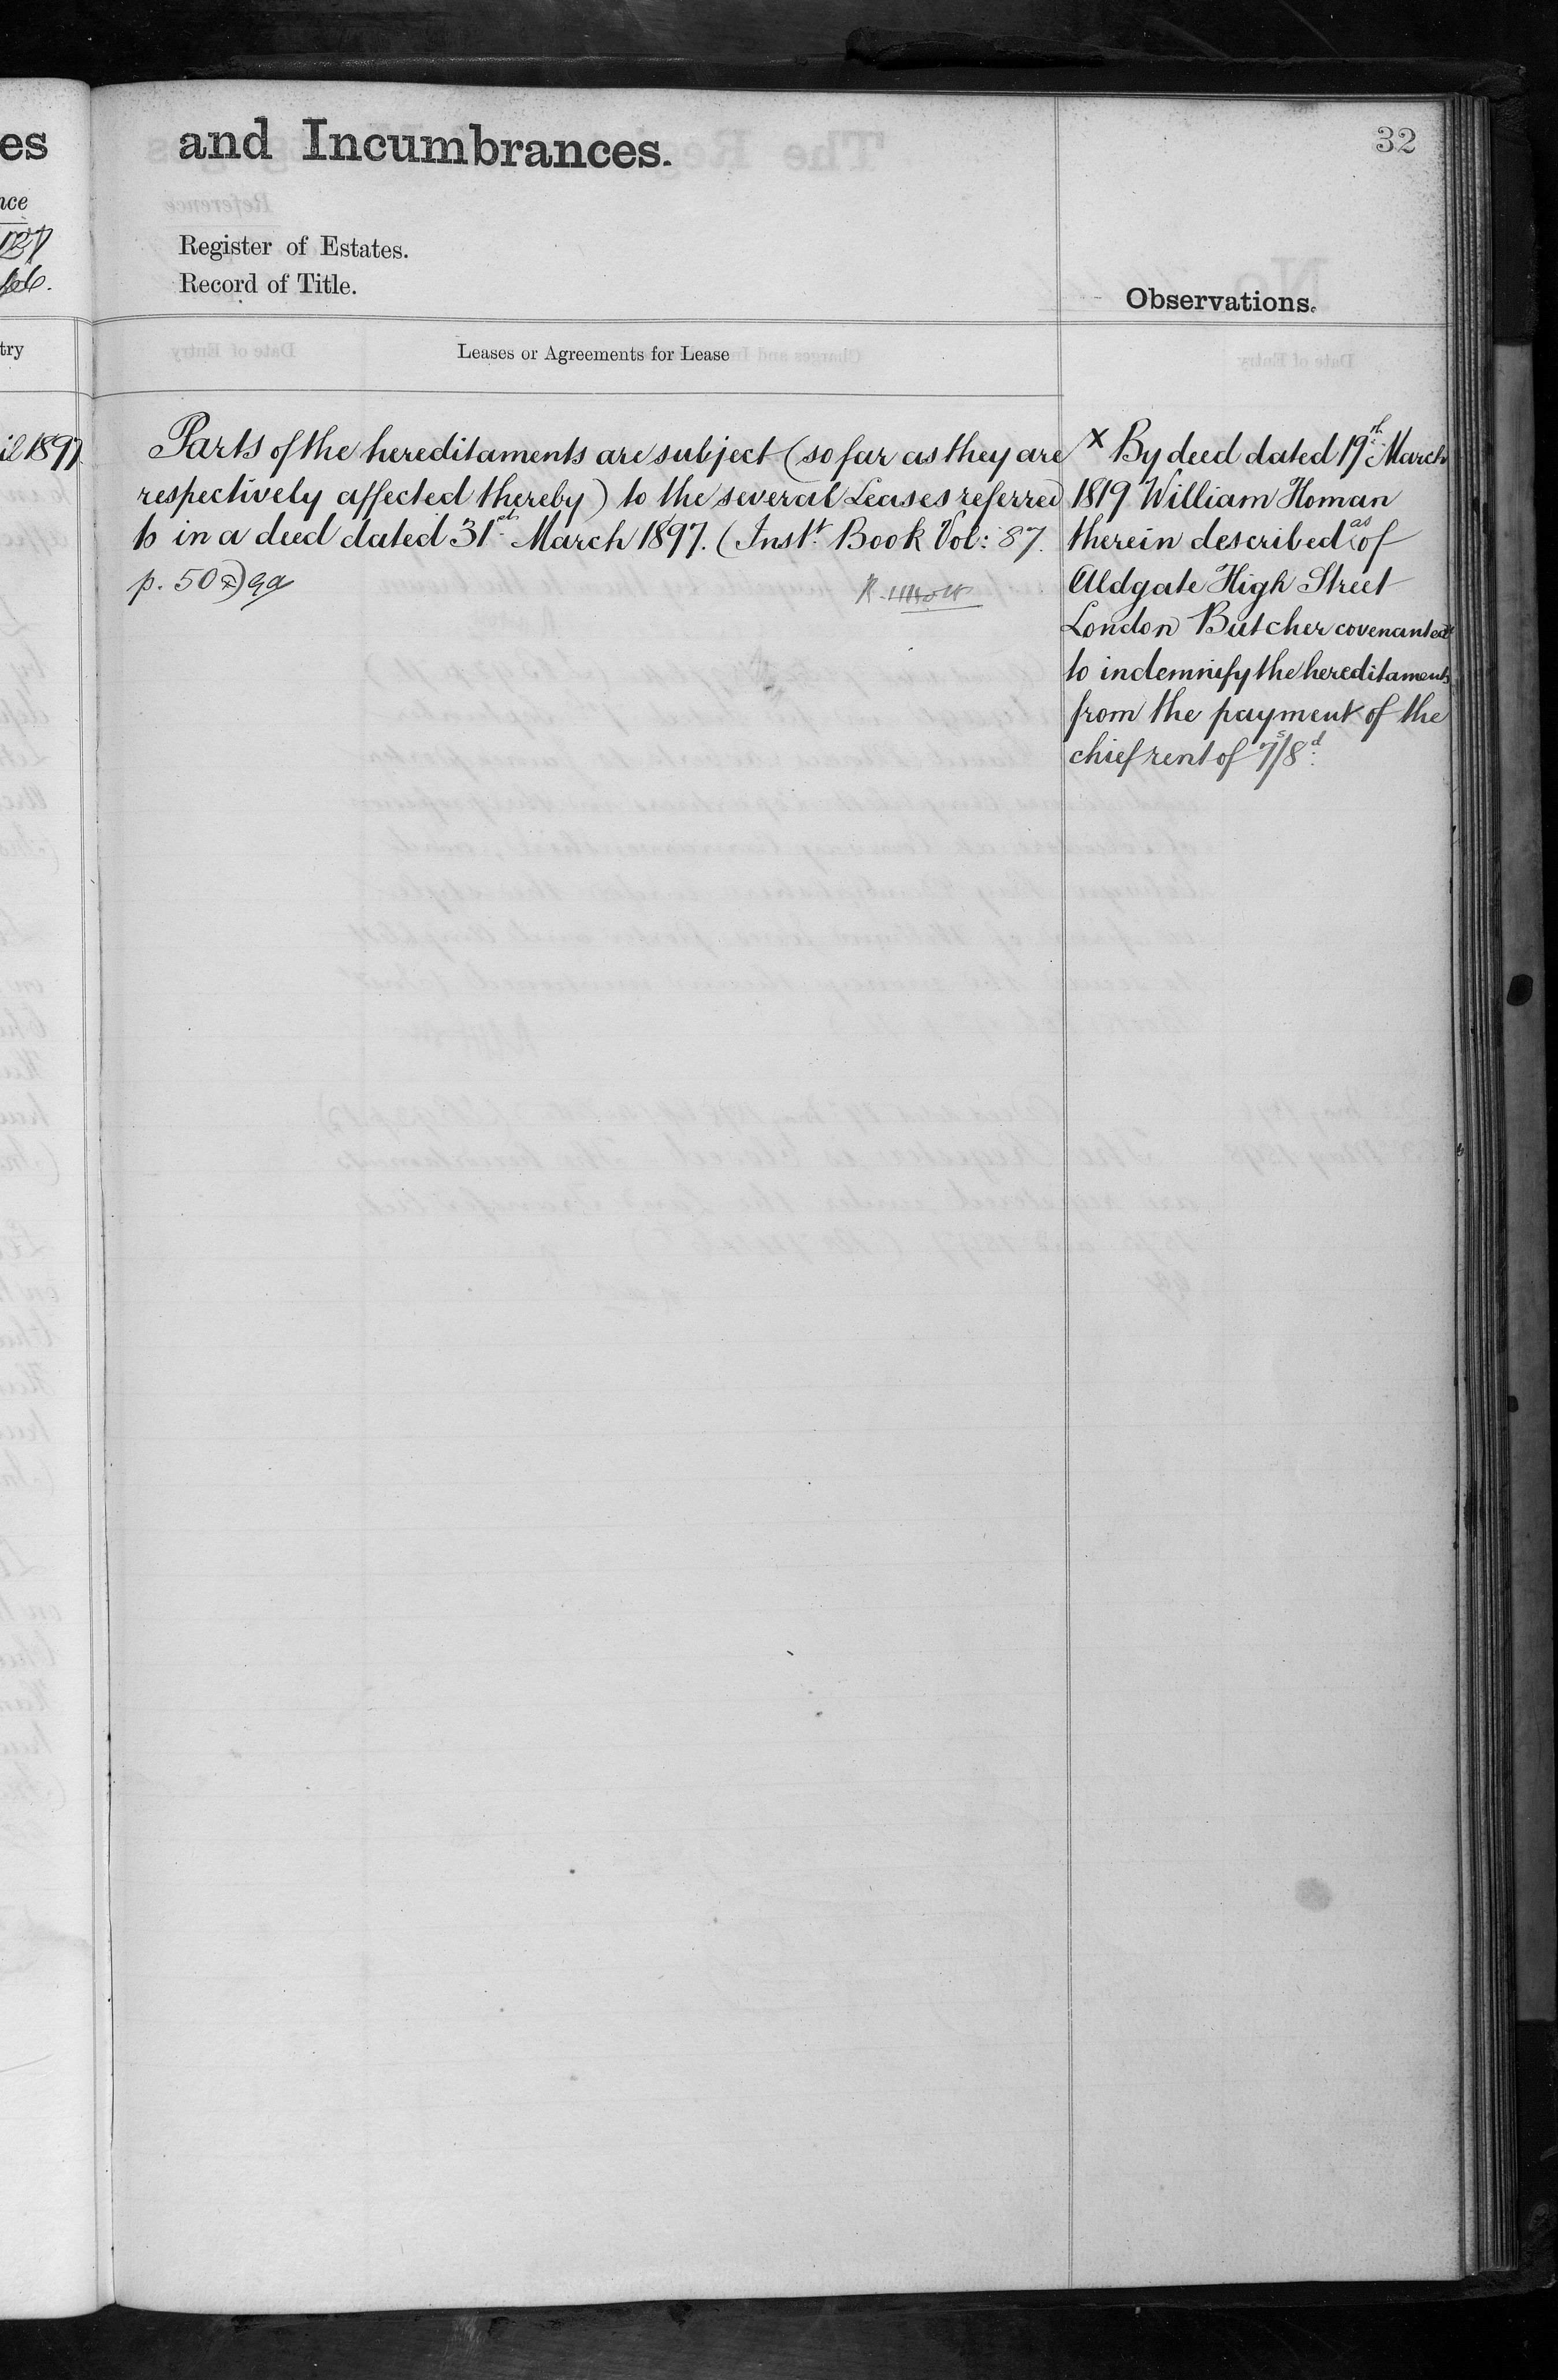 es
and Incumbrances.
32
nce
127
Register of Estates.
Record of Title.
Observations.
try
Leases or Agreements for Lease
il 1897
Parts of the hereditaments are subject (so far as they are
respectively affected thereby) to the several Leases referred
to in a deed dated 31st March 1897. (Instt Book Vol: 87.
p. 50
X By deed dated 19th March
1819 William Homan
therein described as of
Aldgate High Street
London Butcher covenanted
to indemnify the hereditaments
from the payment of the
chief rent of 7s/8d